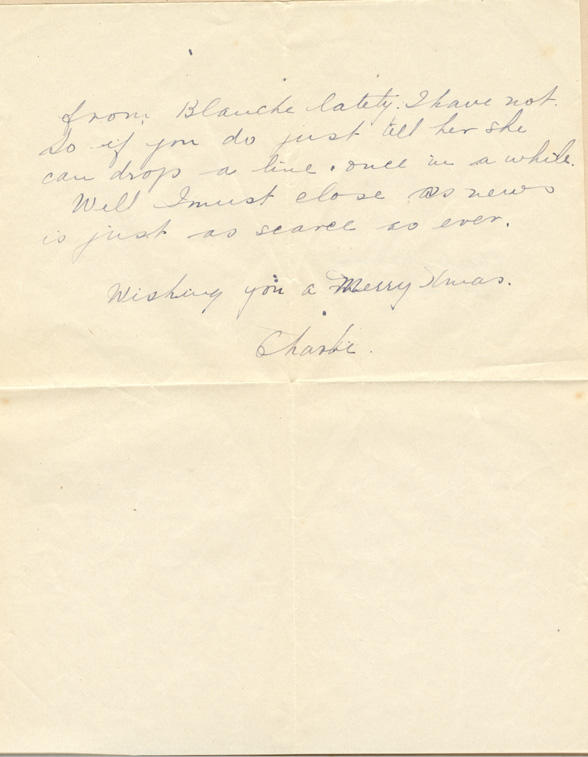 from Blanche lately. I have not.
So if you do just tell her she
can drop a line. once in a while.
Well I must close as news
is just as scarce as ever.
Wishing you a Merry Xmas.
Charlie.